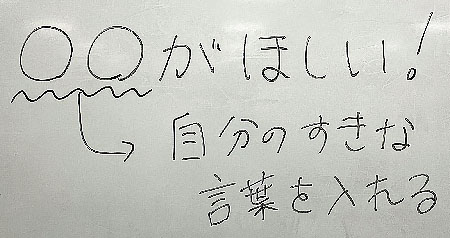 ○○がほしい！
自分のすきな
言葉を入れる